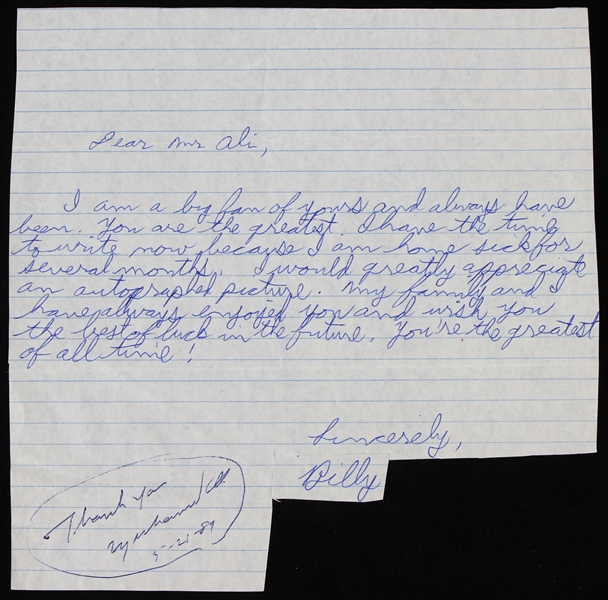 Dear Mr Ali,
I am a big fan of yours and always have
been. You are the greatest. I have the time
to write now because I am home sick for
several months. I would greatly appreciate
an autographed picture. My family and I
have always enjoyed you and wish you
the best of luck in the future. You're the greatest
of all time!
Sincerely,
Billy
Thank you
Muhammad Ali
5-21-89